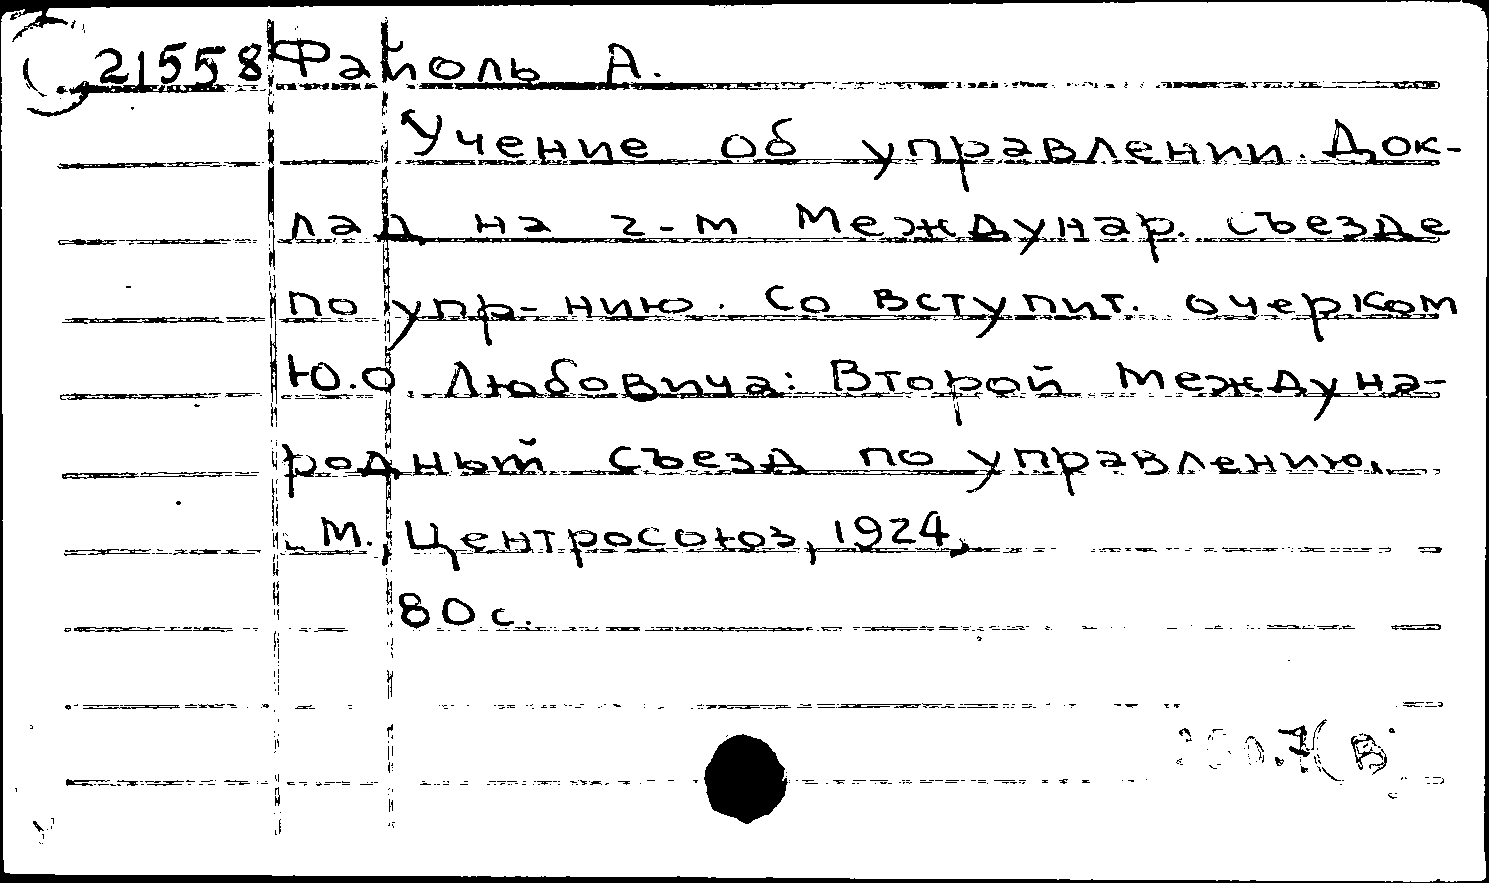 21558 Файоль А.
Учение об управлении. Док-
лад на 2-м Междунар. съезде
по упр-нию. Со вступит. очерком
Ю.О. Любовича: Второй Междуна-
родный съезд по управлению.
М., Центросоюз, 1924,
80 с.